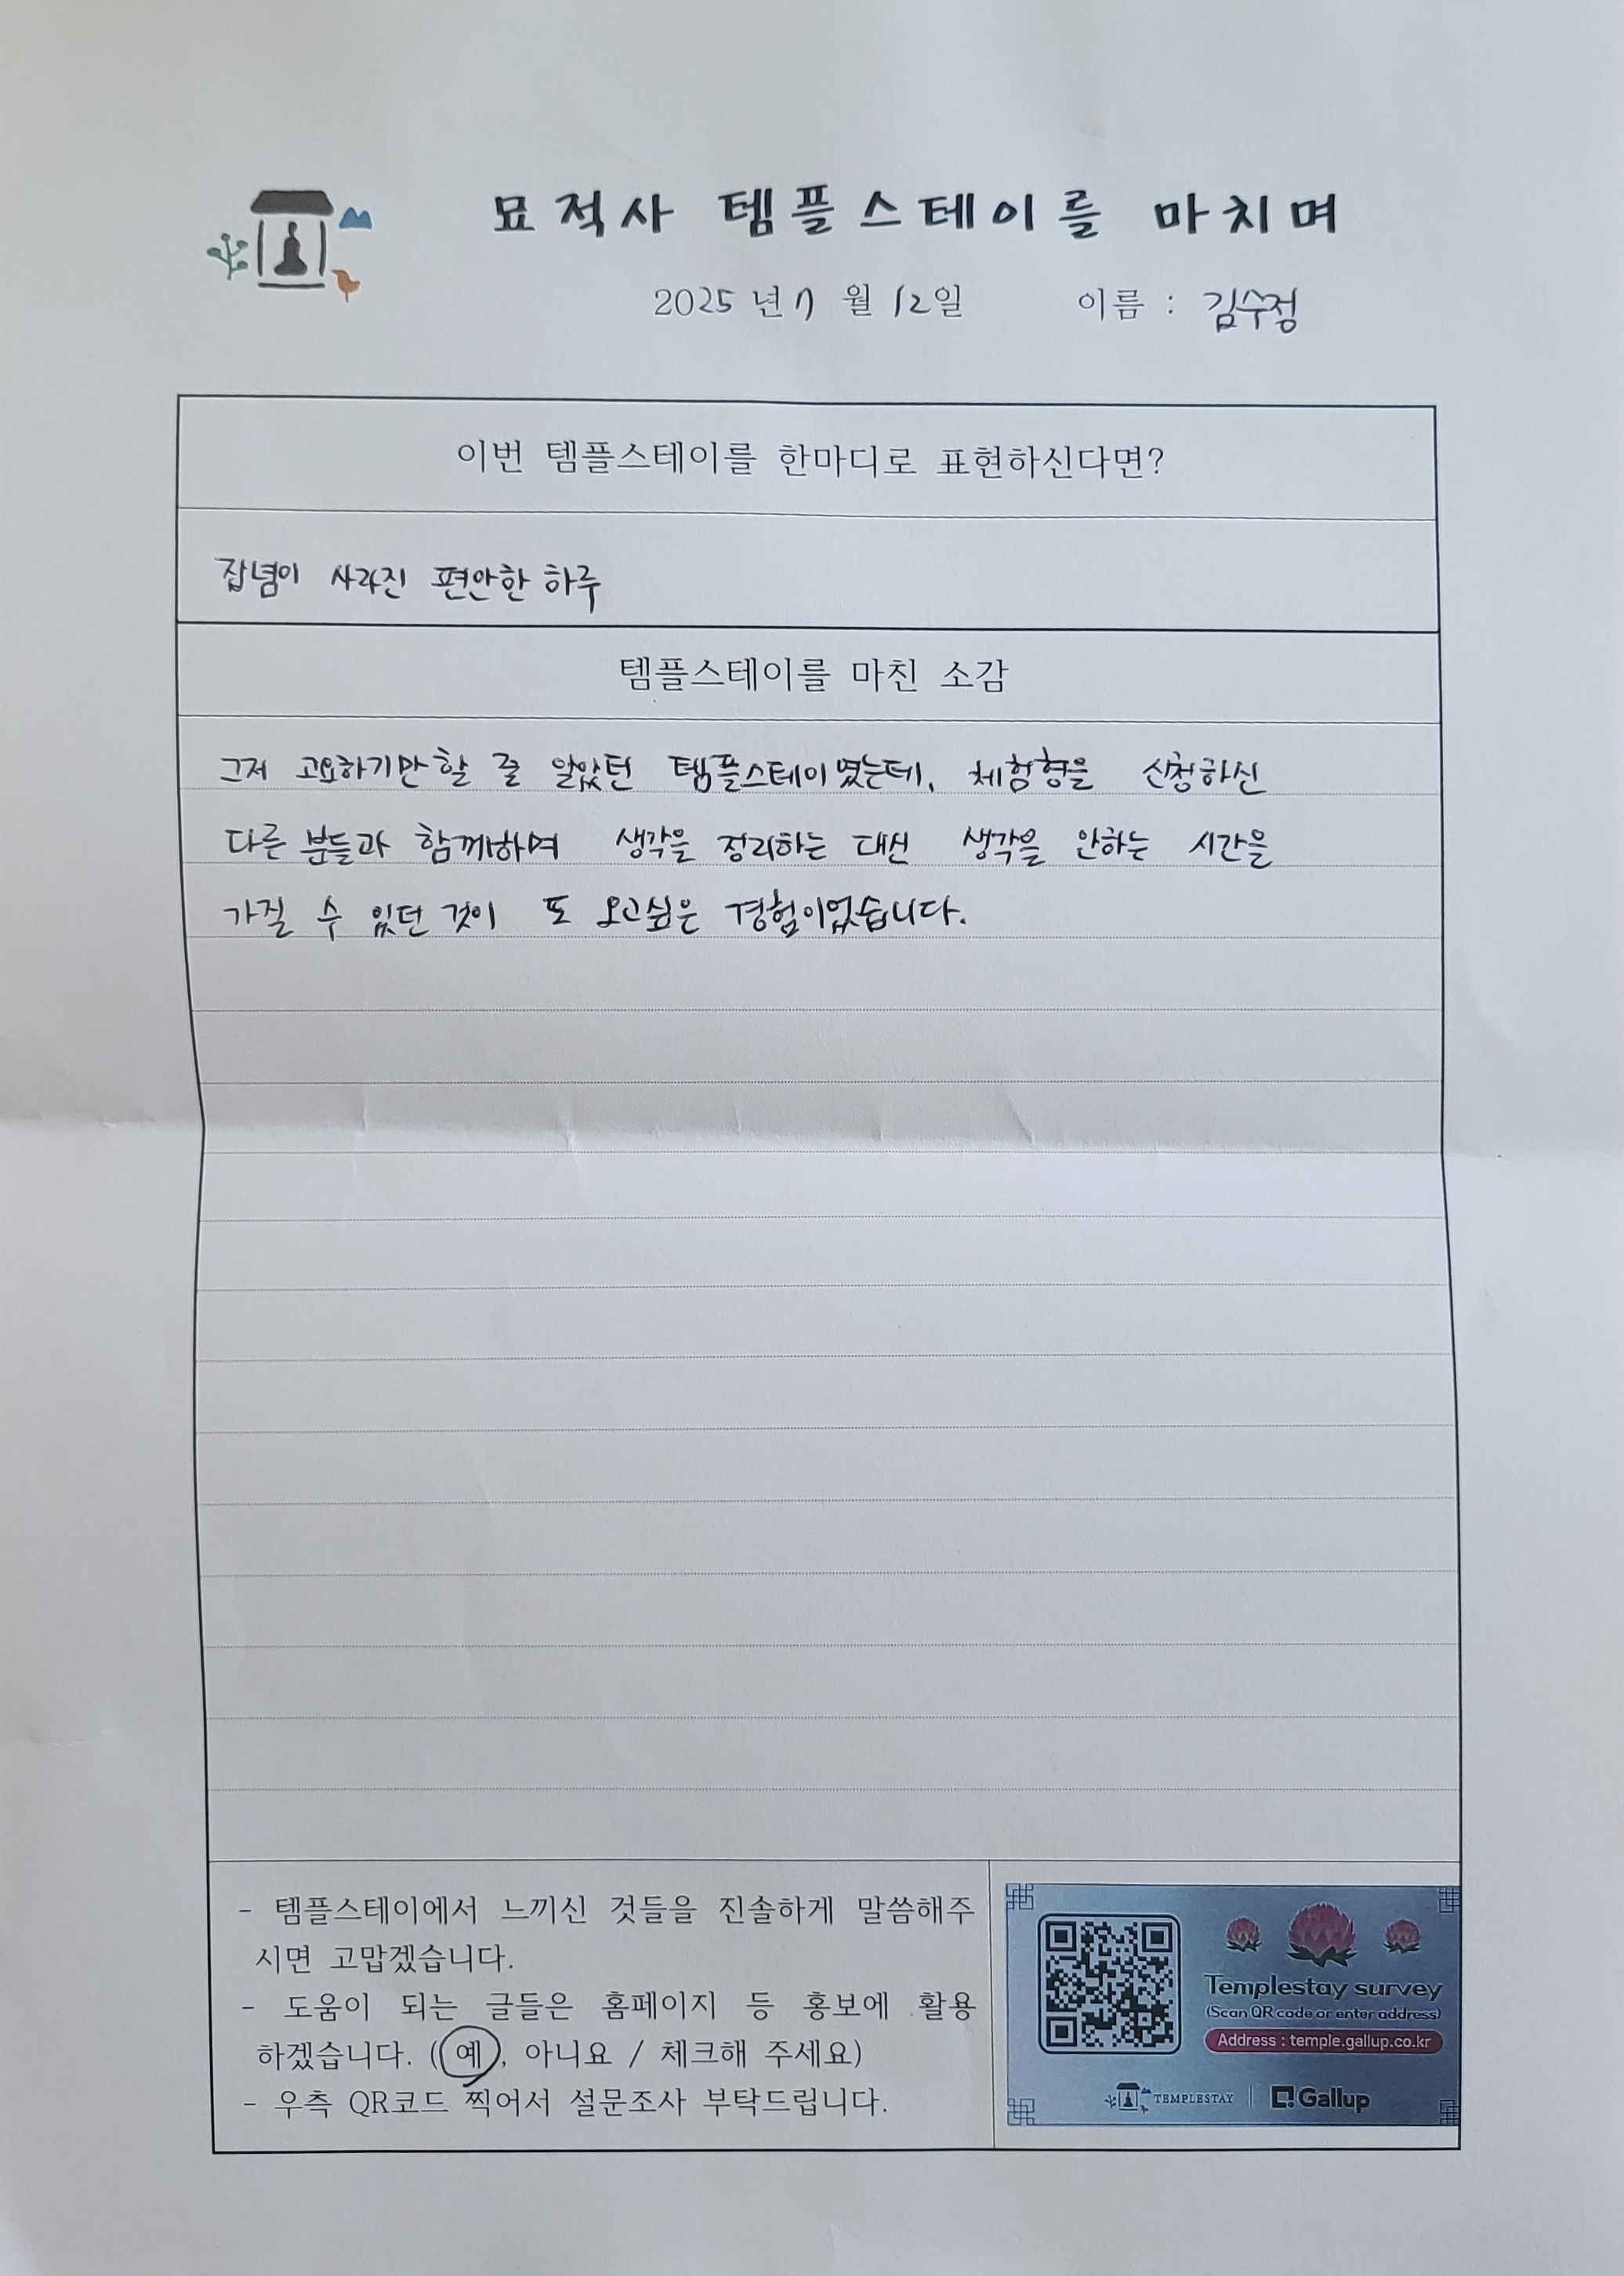 묘적사 템플스테이를 마치며
2025년 7월 12일 이름 : 김수정
이번 템플스테이를 한마디로 표현하신다면?
잡념이 사라진 편안한 하루
템플스테이를 마친 소감
그저 고요하기만할 줄 알았던 템플스테이였는데, 체험형을 신청하신
다른 분들과 함께하며 생각을 정리하는 대신 생각을 안하는 시간을
가질 수 있던 것이 또 오고싶은 경험이었습니다.
- 템플스테이에서 느끼신 것들을 진솔하게 말씀해주
시면 고맙겠습니다.
- 도움이 되는 글들은 홈페이지 등 홍보에 활용
하겠습니다. (예, 아니요 / 체크해 주세요)
- 우측 QR코드 찍어서 설문조사 부탁드립니다.
Templestay survey
(Scan QR code or enter address)
Address : temple.gallup.co.kr
TEMPLESTAY | Gallup